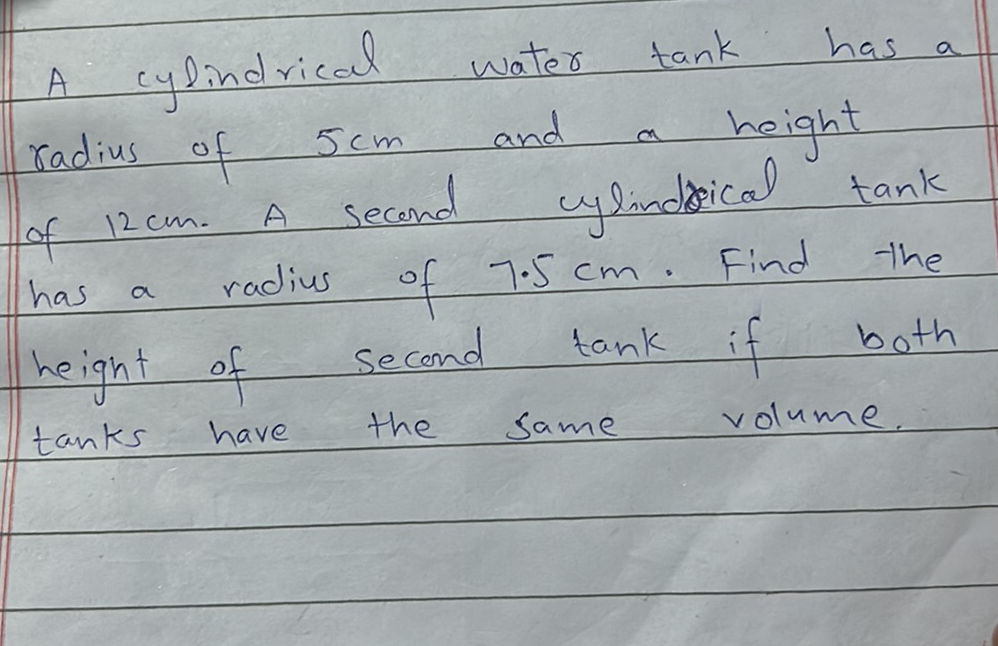 A cylindrical water tank has a
radius of 5cm and a height
of 12 cm. A second cylindrical tank
has a radius of 7.5 cm. Find the
height of second tank if both
tanks have the same volume.